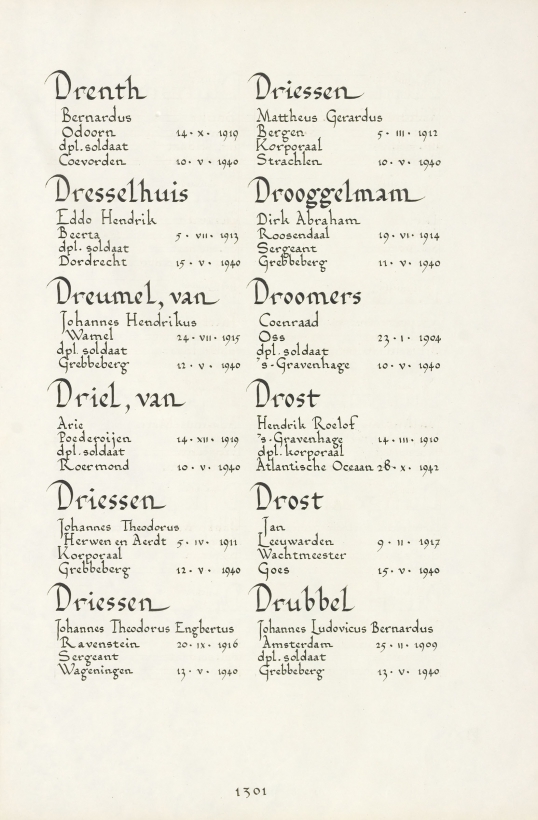 Drenth
Bernardus
Odoorn 14 · x · 1919
dpl. soldaat
Coevorden 10 · v · 1940
Dresselhuis
Eddo Hendrik
Beerta 5 · vii · 1913
dpl. soldaat
Dordrecht 15 · v · 1940
Dreumel, van
Johannes Hendrikus
Wamel 24 · vii · 1915
dpl. soldaat
Grebbeberg 12 · v · 1940
Driel, van
Arie
Poederoijen 14 · xii · 1919
dpl. soldaat
Roermond 10 · v · 1940
Driessen
Johannes Theodorus
Herwen en Aerdt 5 · iv · 1911
Korporaal
Grebbeberg 12 · v · 1940
Driessen
Johannes Theodorus Engbertus
Ravenstein 20 · ix · 1916
Sergeant
Wageningen 13 · v · 1940
Driessen
Mattheus Gerardus
Bergen 5 · iii · 1912
Korporaal
Strachlen 10 · v · 1940
Drooggelmam
Dirk Abraham
Roosendaal 19 · vi · 1914
Sergeant
Grebbeberg 11 · v · 1940
Droomers
Coenraad
Oss 23 · i · 1904
dpl. soldaat
's-Gravenhage 10 · v · 1940
Drost
Hendrik Roelof
's-Gravenhage 14 · iii · 1910
dpl. korporaal
Atlantische Oceaan 28 · x · 1942
Drost
Jan
Leeuwarden 9 · ii · 1917
Wachtmeester
Goes 15 · v · 1940
Drubbel
Johannes Ludovicus Bernardus
Amsterdam 25 · ii · 1909
dpl. soldaat
Grebbeberg 13 · v · 1940
1301